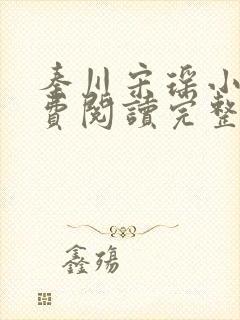 秦川宋瑶小
費閱讀完整
鑫殤